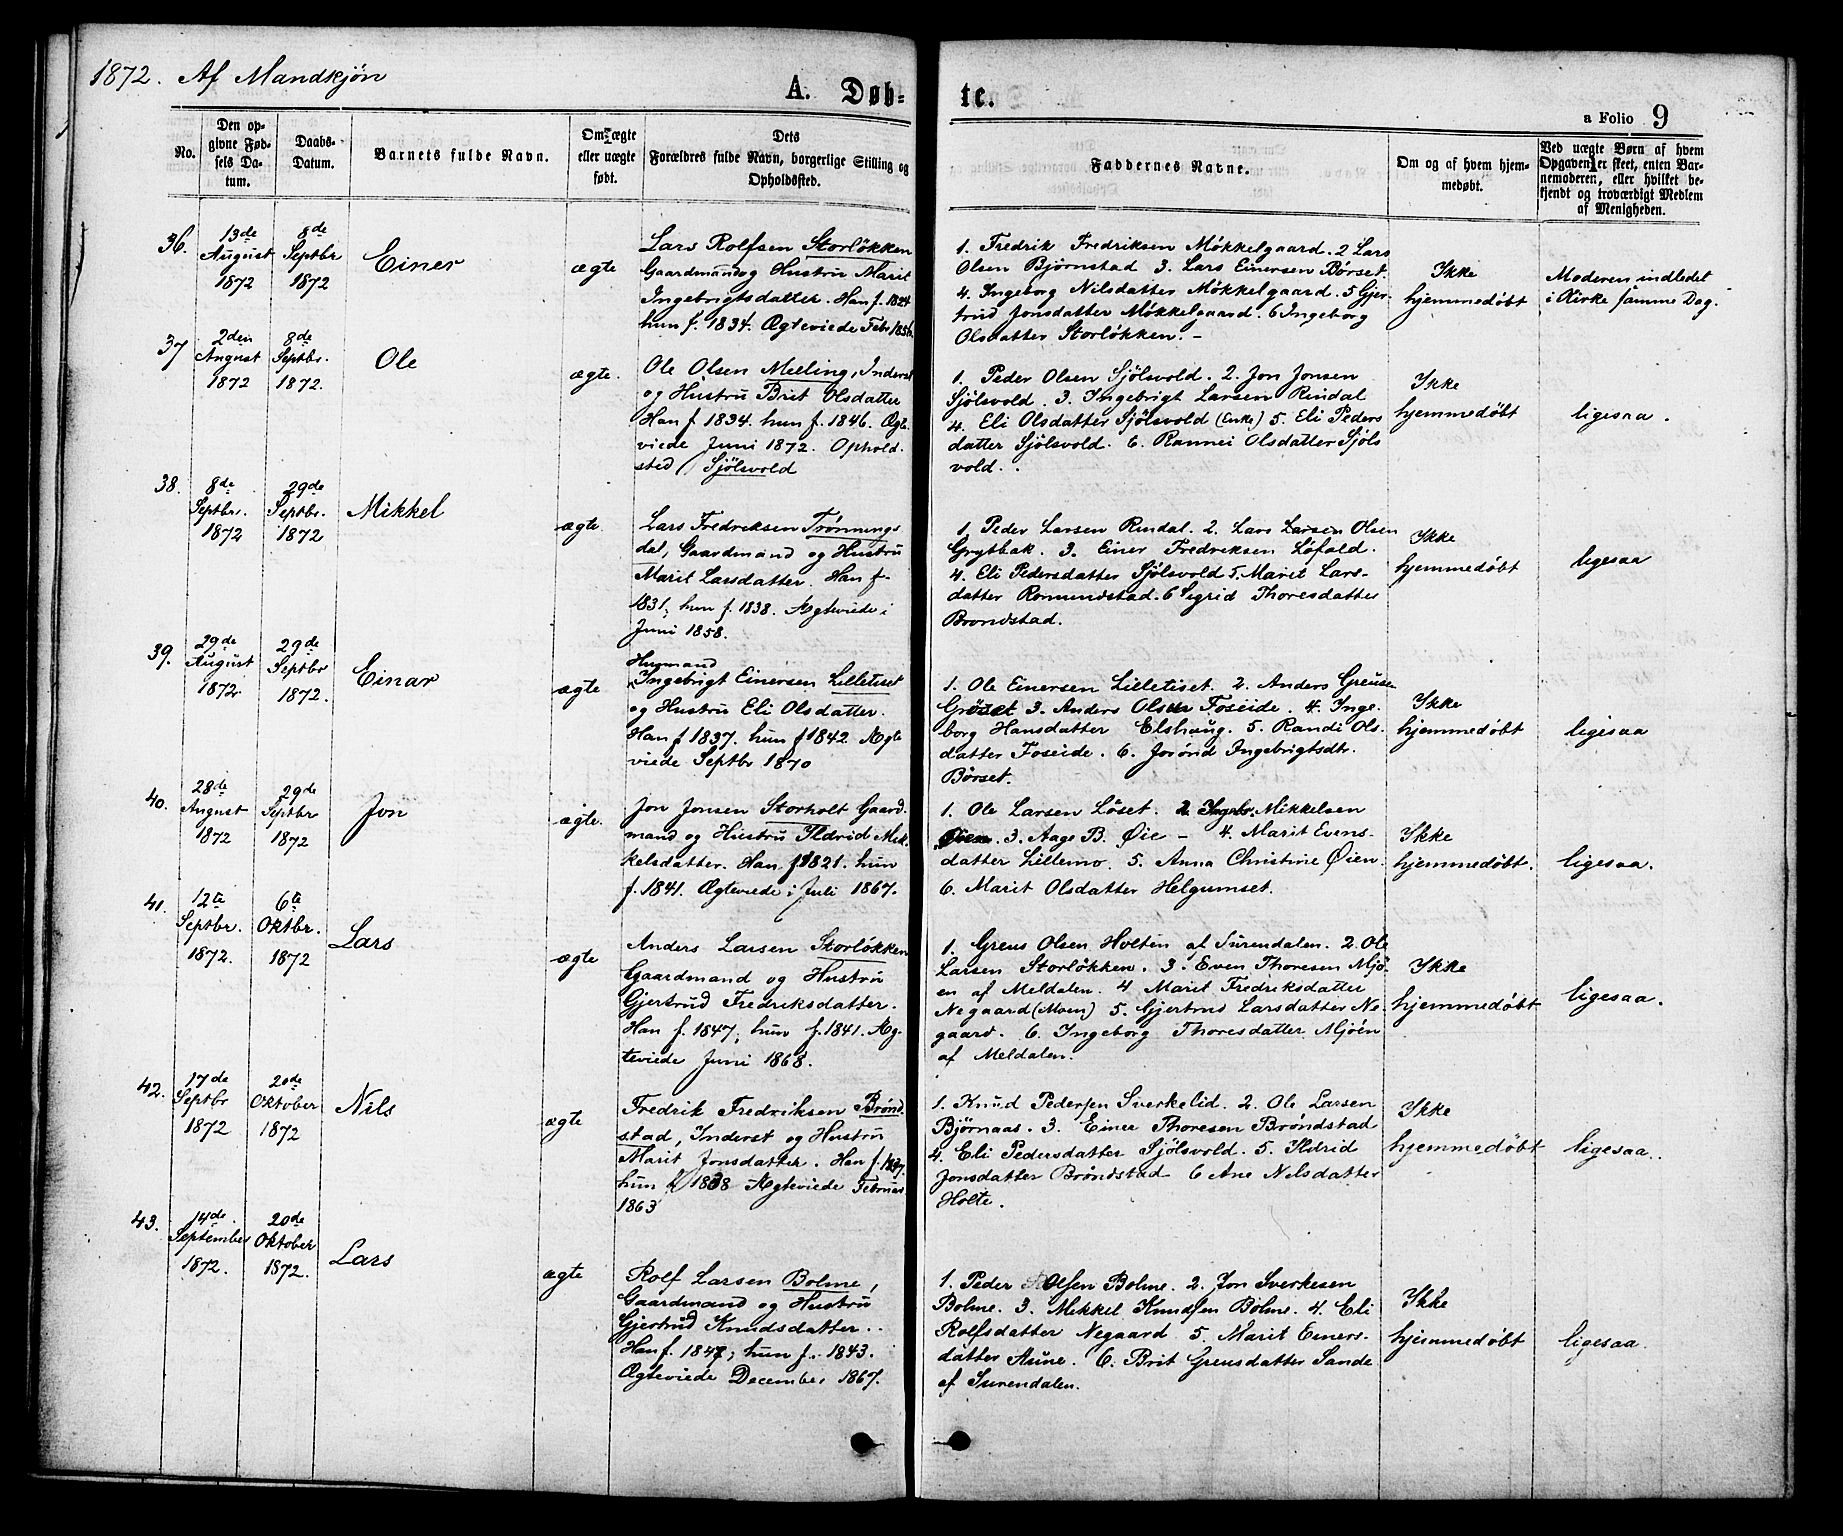 1872. Af Mandkjøn
A. Døb-
te.
a Folio 9
No.
Den op-
givne Fød-
sels Da-
tum.
Daabs-
Datum.
Barnets fulde Navn.
Om ægte
eller uægte
født.
Dets
Forældres fulde Navn, borgerlige Stilling og
Opholdssted.
Faddernes Navne.
Om og af hvem hjem-
medøbt.
Ved uægte Børn af hvem
Opgaven er skeet, enten Bar-
nemoderen, eller hvilket be-
kjendt og troværdigt Medlem
af Menigheden.
36.
13de
August
1872
8de
Septbr
1872
Einer
ægte
Lars Rolfsen Storløkken
Gaardmand og Hustru Marit
Ingebrigtsdatter. Han f. 1824
hun f. 1834. Ægteviede Febr 1856.
1. Fredrik Fredriksen Møkkelgaard. 2 Lars
Olsen Bjørnstad 3. Lars Einersen Børset.
4. Ingeborg Nilsdatter Møkkelgaard. 5 Gjer-
trud Jonsdatter Møkkelgaard. 6 Ingeborg
Olsdatter Storløkken. -
Ikke
hjemmedøbt
Moderen indledet
i Kirke samme Dag.
37
2den
August
1872
8de
Septbr.
1872.
Ole
ægte.
Ole Olsen Meeling, Inderst
og Hustru Brit Olsdatter
Han f 1834. hun f. 1846. Ægt-
viede Juni 1872. Ophold.
sted Sjølsvold
1. Peder Olsen Sjølsvold. 2. Jon Jonsen
Sjølsvold. 3. Ingebrigt Larsen Rindal
4. Eli Olsdatter Sjølsvold (Enke) 5. Eli Peders
datter Sjølsvold. 6. Rannei Olsdatter Sjøls
vold.
Ikke
hjemmedøbt
ligesaa.
38.
8de
Septbr.
1872
29de
Septbr.
1872
Mikkel
ægte.
Lars Fredriksen Trønnings
dal, Gaardmand og Hustru
Marit Larsdatter. Han f.
1831, hun f. 1838. Ægteviede i
Juni 1858.
1. Peder Larsen Rindal. 2. Lars Larsen Olsen
Grytbak. 3. Einer Fredriksen Løfald.
4. Eli Pedersdatter Sjølsvold 5. Marit Lars-
datter Romundstad. 6 Sigrid Thoresdatter
Brondstad.
Ikke
hjemmedøbt
ligesaa
39.
29de
August
1872
29de
Septbr
1872.
Einar
ægte
Husmand
Ingebrigt Einersen Lilletiset
og Hustru Eli Olsdatter.
Han f 1837. hun f 1842 Ægte
viede Septbr 1870
1. Ole Einersen Lilletiset. 2. Anders Greuse
Grøset 3. Anders Olsen Foseide. 4. Inge-
borg Hansdatter Elshaug. 5. Randi Ols-
datter Foseide. 6. Jorønd Ingebrigtsdtr.
Børset.
Ikke
hjemmedøbt
ligesaa
40.
28de
August
1872
29de
Septbr
1872
Jon
ægte.
Jon Jonsen Storholt Gaard-
mand og Hustru Ildrid Mik-
kelsdatter. Han f 1821. hun
f. 1841. Ægteviede i Juli 1867.
1. Ole Larsen Løset. 2. Ingebr. Mikkelsen
Øien. 3. Aage B. Øie - 4. Marit Evens-
datter Lillemo. 5. Anna Christine Øien.
6. Marit Olsdatter Helgumset.
Ikke
hjemmedøbt.
ligesaa.
41.
12te
Septbr.
1872.
6te
Oktbr.
1872
Lars
ægte
Anders Larsen Storløkken
Gaardmand og Hustru
Gjertrud Fredriksdatter.
Han f. 1847; hun f. 1841. Æg-
teviede Juni 1868.
1. Greus Olsen Holten af Surendalen. 2. Ole
Larsen Storløkken. 3. Even Thoresen Mjø-
en af Meldalen. 4. Marit Fredriksdatter
Negaard (Moen) 5. Gjertrud Larsdatter Ne-
gaard. 6. Ingeborg Thoresdatter Mjøen
af Meldalen.
Ikke
hjemmedøbt
ligesaa.
42.
17de
Septbr
1872
20de
Oktober
1872
Nils
ægte
Fredrik Fredriksen Brønd-
stad, Inderst og Hustru
Marit Jonsdatter. Han f. 1837.
hun f 1838 Ægteviede Februar
1863
1. Knud Pedersen Sverkelid. 2. Ole Larsen
Bjørnaas. 3. Einer Thoresen Brøndstad
4. Eli Pedersdatter Sjølsvold. 5. Ildrid
Jonsdatter Brøndstad 6 Ane Nilsdatter
Holte.
Ikke
hjemmedøbt
ligesaa.
43.
14de
September
1872.
20de
Oktober
1872.
Lars
ægte
Rolf Larsen Bolme,
Gaardmand og Hustru
Gjertrud Knudsdatter.
Han f. 1847; hun f. 1843.
Ægteviede December 1867.
1. Peder Olsen Bolme. 2. Jon Sverkesen
Bolme. 3. Mikkel Knudsen Bolme. 4. Eli
Rolfsdatter Negaard 5. Marit Einers-
datter Aune. 6. Brit Greusdatter Sande
af Surendalen.
Ikke
hjemmedøbt
ligesaa.